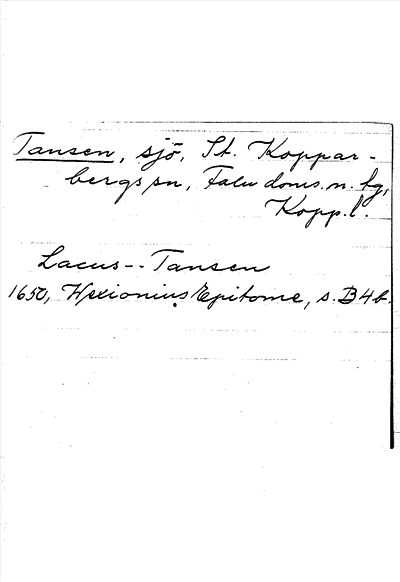 Tansen, sjö, St. Koppar-
bergs sn, Falu doms. n. tg,
Kopp. l.
Lacus -- Tansen
1650, Hexionius, Epitome, s. B4b.